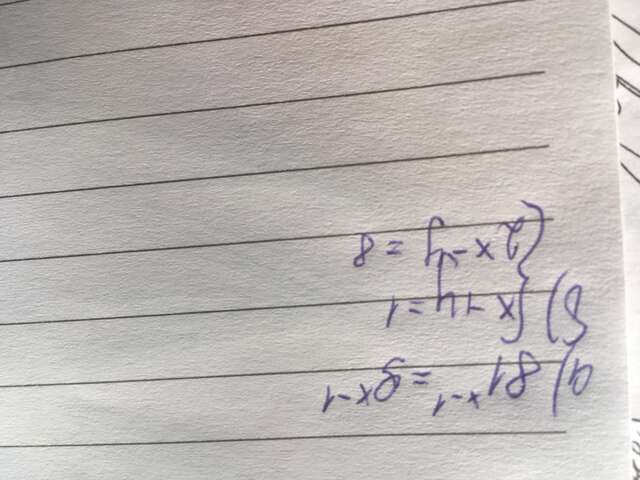 а) 81^{x-1} = 9^{x-1}
б) { x + y = 1
{ 2^{x-y} = 8